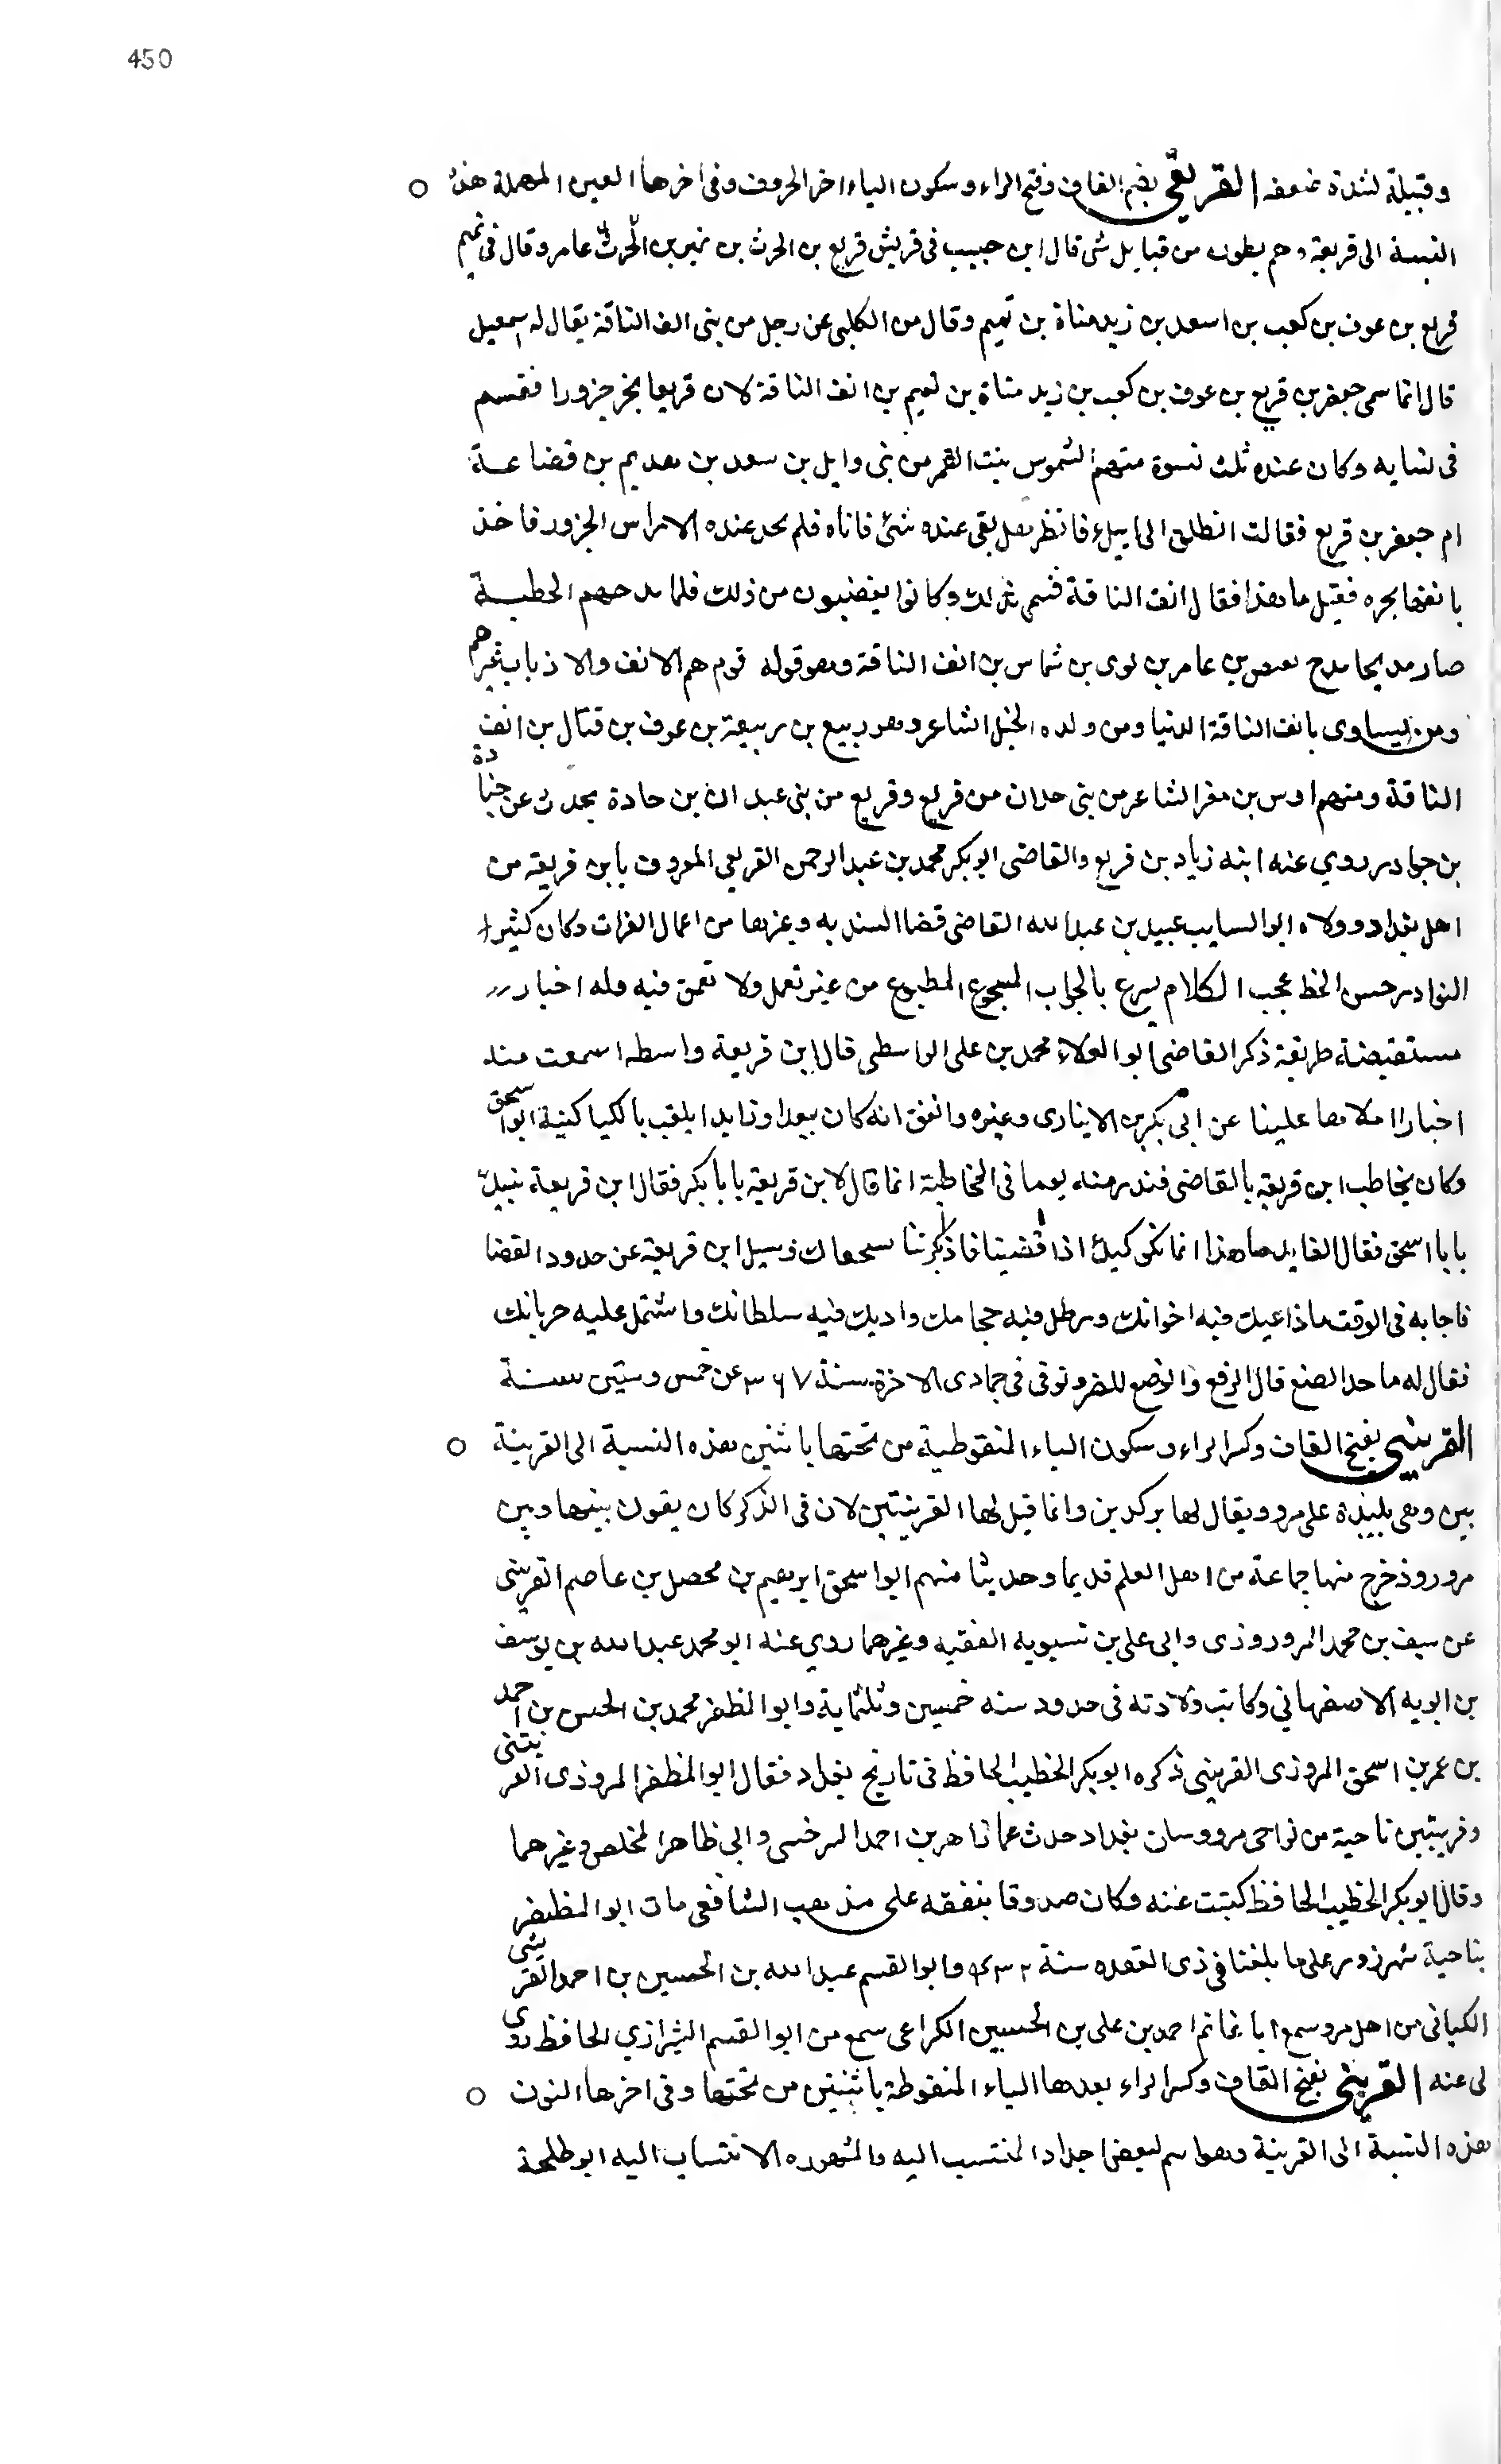 450
وقبيلة لشدة ضعفه القريعي بضم القاف وفتح الراء وسكون الياء اخر الحروف وفي اخرها العين المهملة هذه
النسبة الى قريعة وهم بطون من قبايل شتى قال ابن حبيب في قريش قريع بن الحرث بن نمير بن الحرث عامر وقال في تميم
قريع بن عوف بن كعب بن اسعد بن زيد مناة بن تميم وقال من الكلبي عن رجل من بني انف الناقة يقال له سمعيل
قال انما سمى جعفر بن قريع بن عوف بن كعب بن زيد مناة بن تميم بن انف الناقة لان قريعا نحر جزورا فقسم
في نسايه وكان عنده ثلث نسوة منهم الشموس بنت القمر من بني وايل بن سعد بن هديم بن قضاعة
ام جعفر بن قريع فقالت انطلق الى ابيك فانظر هل بقى عنده شئ فاتاه فلم يجد عنده الا راس الجزور فاخذ
بانفها يجره فقيل ما هذا فقال انف الناقة فسمى بذلك وكانوا يغضبون من ذلك فلما مدحهم الحطية
صار مديحا مدح بن عامر بن لوى بن شماس بن انف الناقة وهو قوله قوم هم الانف والاذناب غيرهم
ومن يساوى بانف الناقة الدنيا ومن ولده المخبل الشاعر وهو ربيع بن ربيعة بن عوف بن قتال بن انف
الناقة ومنهم اوس بن مغرا الشاعر من بني حدان من قريع وقريع من بني عبد الن بن حادة يحدث عن جنادة
بن جراد روي عنه ابنه زياد بن قريع والقاضى ابو بكر محمد بن عبد الرحمن القريعي المعروف بابن قريعة من
اهل بغداد وولاه ابو السايب عبيد بن عبد الله القاضى قضا السنديه وغيرها من اعمال الفرات وكان كثير
النوادر حسن الخط عجب الكلام يسرع بالجواب المسجوع المطبوع من غير تعمل ولا تعمق فيه وله اخبار
مستفيضة طريفة ذكر القاضى ابو العلاء محمد بن على الواسطى قال ابن قريعة واسطه اسمعت منه
اخبارا املاها علينا عن ابى بكر بن الانبارى وغيره واتفق انه كان ببغدا وزايدا يلقب بالكيا كنية ابو اسحق
وكان يخاطب ابن قريعة بالقاضى فندر منه يوما في المخاطبة انما قال لابن قريعة يا بابكر فقال ابن قريعة لبيك
يا با اسحق فقال القايد ما هذا انما نكرت كيك اذا قضيتنا فاذكرتنا وسيل ابن قريعة عن حدود القضا
فاجابه في الوقت ماذاعبك فيه اخوانك وسرطل فيه حجامك واديك فيه سلطانك واشتمل عليه حربانك
فقال له ما حد الصفع قال الرفع والوضع للضر وتوفى في جمادى الاخرة سنة ٣٦٧ عن خمس وستين سنة
القرينيي بفتح القاف وكسر الراء وسكون الياء المنقوطية من تحتها باثنين هذه النسبة الى القرينة
بين وهى بليدة على مرو ويقال لها بركدين وانما قيل لها القرينتين لان في الذكر كان يقون بينها وبين
مروروذ خرج منها جماعة من اهل العلم قديما وحديثا منهم ابو اسحق ابرهيم بن محصل بن عاصم القرينى
عن سيف بن محمد المروروذى وابى على بن نسبويه الفقيه وغيرهما روي عنه ابو محمد عبد الله بن يوسف
بن ابويه الاصفهاني وكانت ولادته في حدود سنه خمسين وثلثماية وابو المظفر محمد بن الحسن بن احمد
بن عمر بن اسحق المروزى القرينى ذكره ابو بكر الخطيب الحافظ في تاريخ بغداد فقال ابو المظفر المروزى القرينتنى
وقرينتين ناحية من نواحى مرو وسان بغداد حدث عما زاهر بن احمد السرخسى وابى ظاهر المخلص وغيرهما
وقال ابو بكر الخطيب الحافظ كتبت عنه وكان صدوقا بنفقه على مذهب الشافعى مات ابو المظفر
بناحية شهرزور على ما بلغنا في ذى القعده سنة ٤٣٢ وابو القسم عبد الله بن الحسين بن احمد القرينى
الكبانى من اهل مرو سمع ابا غانم احمد بن على بن الحسين الكراعى سمع من ابو القسم الشيرازي الحافظ روى
لى عنه القرينى بفتح القاف وكسر الراء بعدها الياء المنقوطة باثنين من تحتها وفى اخرها النون
هذه النسبة الى القرينة وهو اسم لبعض اجداد المنتسب اليه والمشهوره الانتساب اليه ابو طلحة